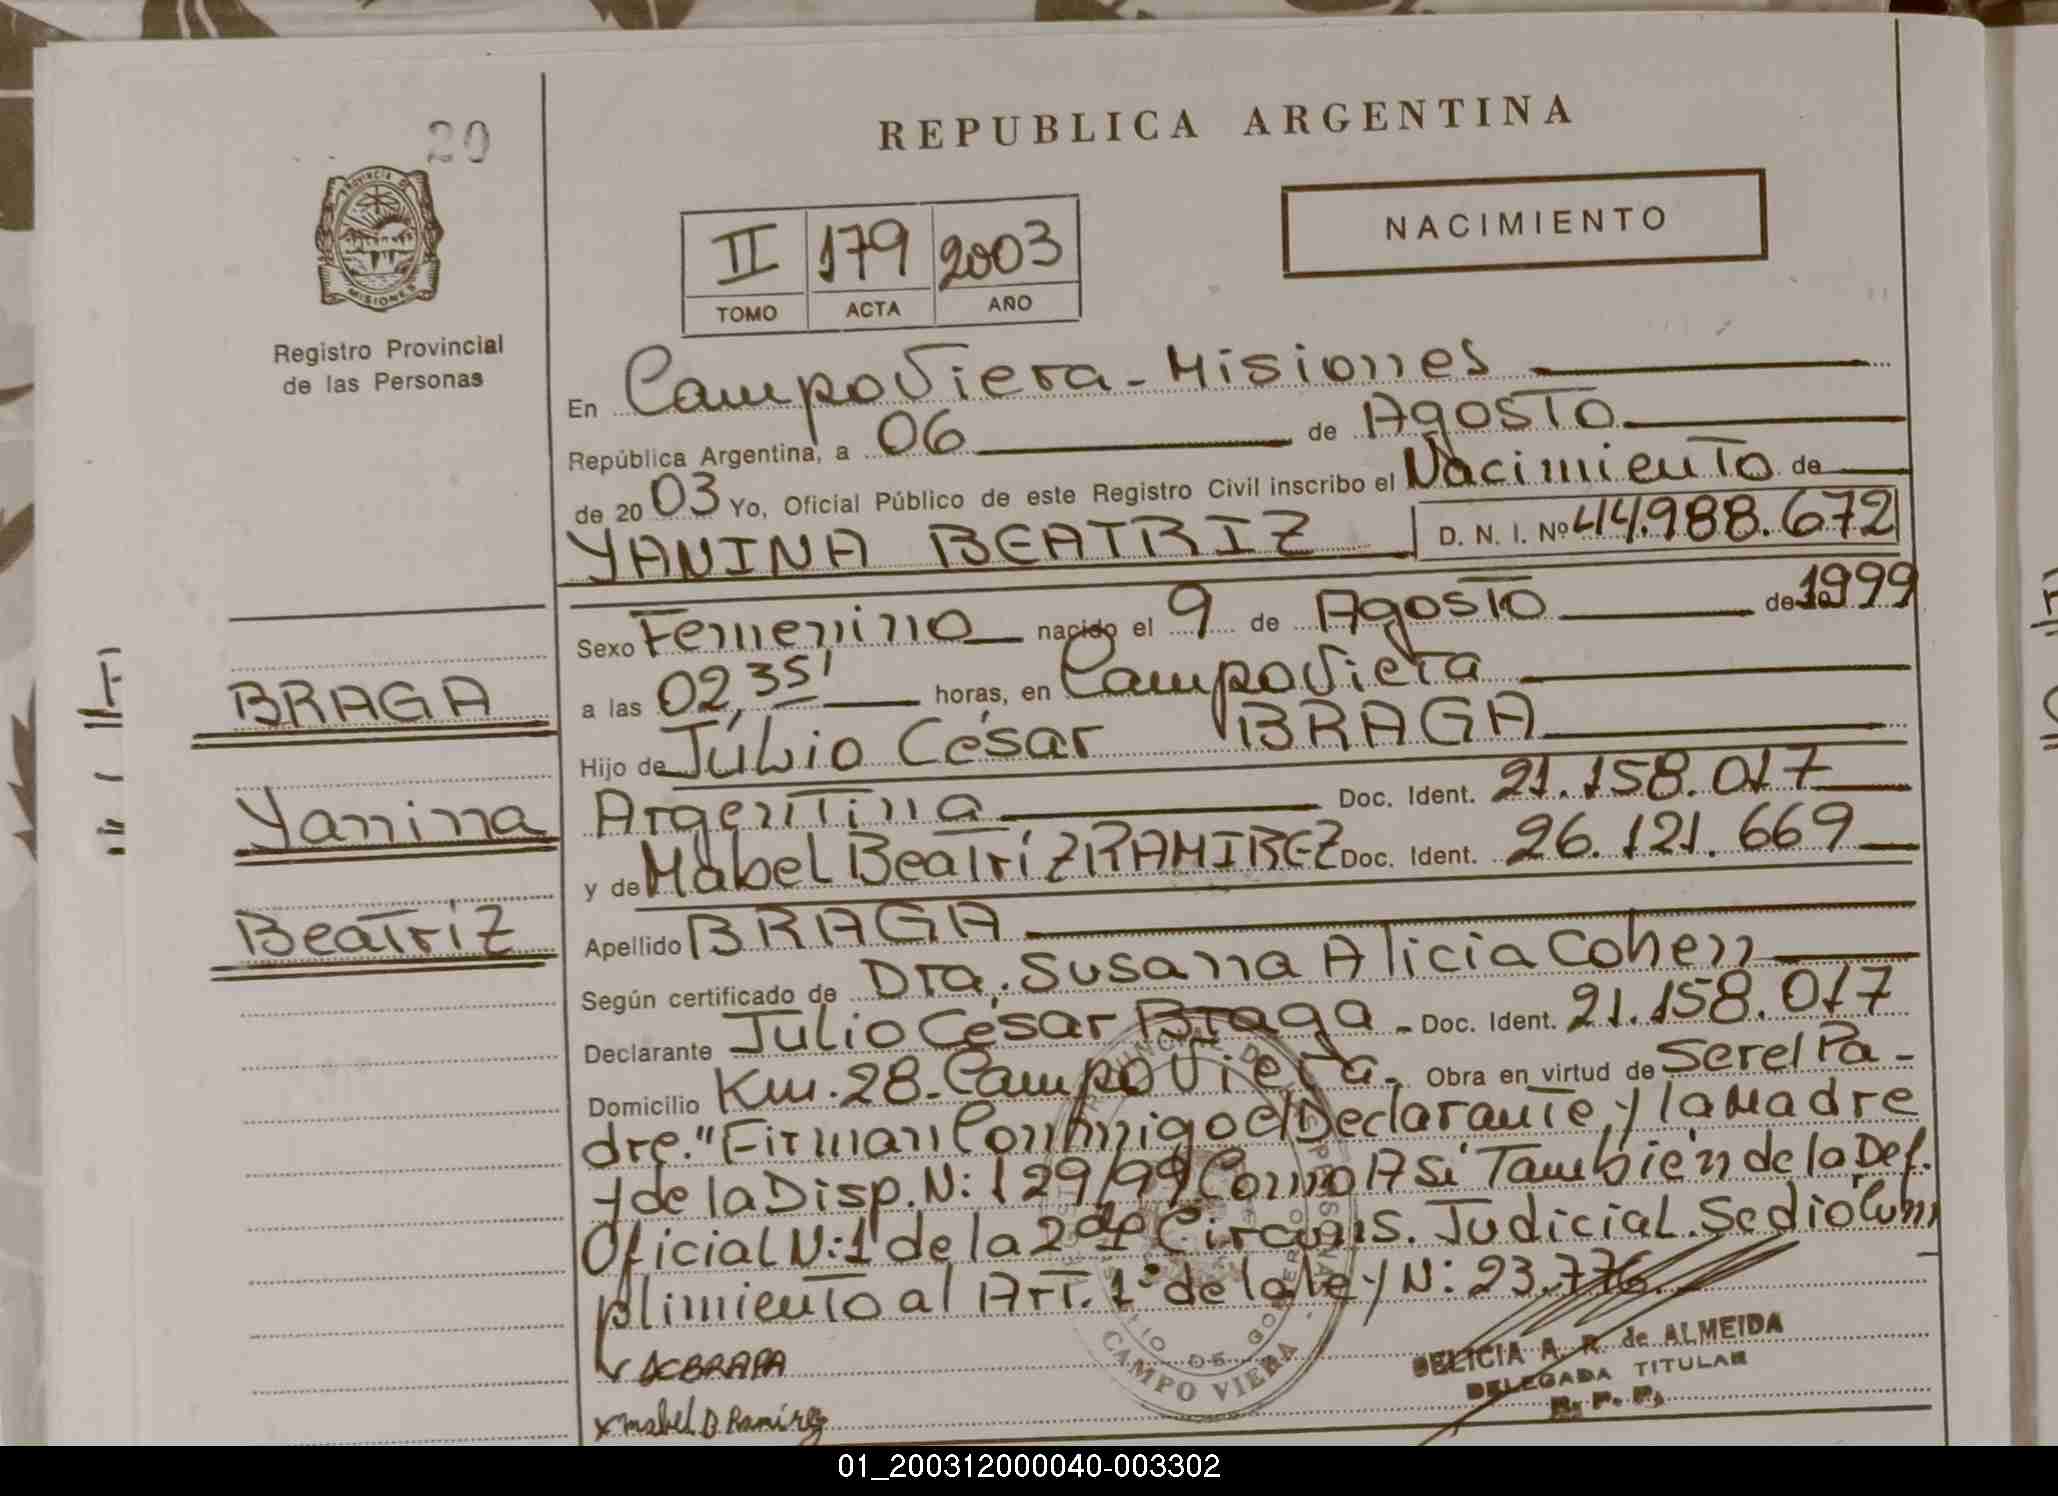 20
REPUBLICA ARGENTINA
NACIMIENTO
II 179 2003
TOMO ACTA AÑO
PROVINCIA DE
MISIONES
Registro Provincial
de las Personas
En Campo Viera - Misiones
República Argentina, a 06 de Agosto
de 2003 Yo, Oficial Público de este Registro Civil inscribo el Nacimiento de
YANINA BEATRIZ D. N. I. Nº 44.988.672
Sexo Femenino nacido el 9 de Agosto de 1999
a las 02,35' horas, en Campo Viera
Hijo de Julio César BRAGA
Argentina Doc. Ident. 21.158.017
y de Mabel Beatríz RAMIREZ Doc. Ident. 26.121.669
Apellido BRAGA
Según certificado de Dra. Susana Alicia Cohen
Declarante Julio César Braga - Doc. Ident. 21.158.017
Domicilio Km. 28 - Campo Viera. Obra en virtud de Ser el Pa-
dre." Firman Conmigo el Declarante, y la Madre
y de la Disp. N: 129/99 Como Asi También de la Def.
Oficial N:1 de la 2da Circuns. Judicial. Se dió Cum
plimiento al Art. 1º de la ley N: 23.776.
BRAGA
Yanina
Beatriz
x Mabel B Ramírez
CAMPO VIERA
DELICIA A. R. de ALMEIDA
DELEGADA TITULAR
R. P. P.
01_200312000040-003302